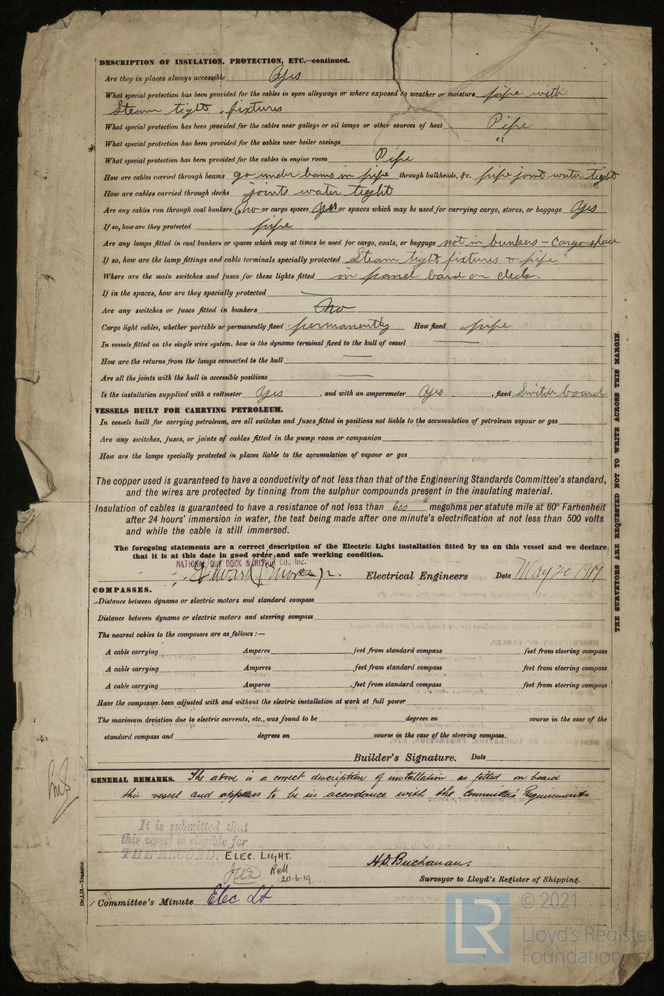 DESCRIPTION OF INSULATION, PROTECTION, ETC.—continued.
Are they in places always accessible Yes
What special protection has been provided for the cables in open alleyways or where exposed to weather or moisture pipe with
Steam tight fixtures
What special protection has been provided for the cables near galleys or oil lamps or other sources of heat Pipe
What special protection has been provided for the cables near boiler casings "
What special protection has been provided for the cables in engine room Pipe
How are cables carried through beams go under bams in pipe through bulkheads, &c. pipe joint water tight
How are cables carried through decks joints water tight
Are any cables run through coal bunkers no or cargo spaces yes or spaces which may be used for carrying cargo, stores, or baggage Yes
If so, how are they protected pipe
Are any lamps fitted in coal bunkers or spaces which may at times be used for cargo, coals, or baggage not in bunkers - cargo space
If so, how are the lamp fittings and cable terminals specially protected Steam tight fixtures & pipe
Where are the main switches and fuses for these lights fitted in panel board on deck.
If in the spaces, how are they specially protected
Are any switches or fuses fitted in bunkers no
Cargo light cables, whether portable or permanently fixed permanently How fixed pipe
In vessels fitted on the single wire system, how is the dynamo terminal fixed to the hull of vessel
How are the returns from the lamps connected to the hull
Are all the joints with the hull in accessible positions
Is the installation supplied with a voltmeter Yes , and with an amperemeter Yes , fixed Switch board
VESSELS BUILT FOR CARRYING PETROLEUM.
In vessels built for carrying petroleum, are all switches and fuses fitted in positions not liable to the accumulation of petroleum vapour or gas
Are any switches, fuses, or joints of cables fitted in the pump room or companion
How are the lamps specially protected in places liable to the accumulation of vapour or gas
The copper used is guaranteed to have a conductivity of not less than that of the Engineering Standards Committee's standard,
and the wires are protected by tinning from the sulphur compounds present in the insulating material.
Insulation of cables is guaranteed to have a resistance of not less than 600 megohms per statute mile at 60° Farhenheit
after 24 hours' immersion in water, the test being made after one minute's electrification at not less than 500 volts
and while the cable is still immersed.
The foregoing statements are a correct description of the Electric Light installation fitted by us on this vessel and we declare
that it is at this date in good order and safe working condition.
NATIONAL DRY DOCK & REPAIR Co., Inc.
Electrical Engineers Date May 20 1919
COMPASSES.
Distance between dynamo or electric motors and standard compass
Distance between dynamo or electric motors and steering compass
The nearest cables to the compasses are as follows:—
A cable carrying Amperes feet from standard compass feet from steering compass
A cable carrying Amperes feet from standard compass feet from steering compass
A cable carrying Amperes feet from standard compass feet from steering compass
Have the compasses been adjusted with and without the electric installation at work at full power
The maximum deviation due to electric currents, etc., was found to be degrees on course in the case of the
standard compass and degrees on course in the case of the steering compass.
Builder's Signature. Date
GENERAL REMARKS. The above is a correct description of installation as fitted on board
this vessel and appears to be in accordance with the Committee's Requirements
It is submitted that
this vessel is eligible for
THE RECORD. ELEC. LIGHT.
20.6.19
H.D. Buchanan.
Surveyor to Lloyd's Register of Shipping.
Committee's Minute Elec Lt
THE SURVEYORS ARE REQUESTED NOT TO WRITE ACROSS THIS MARGIN.
LR
© 2021
Lloyd's Register
Foundation